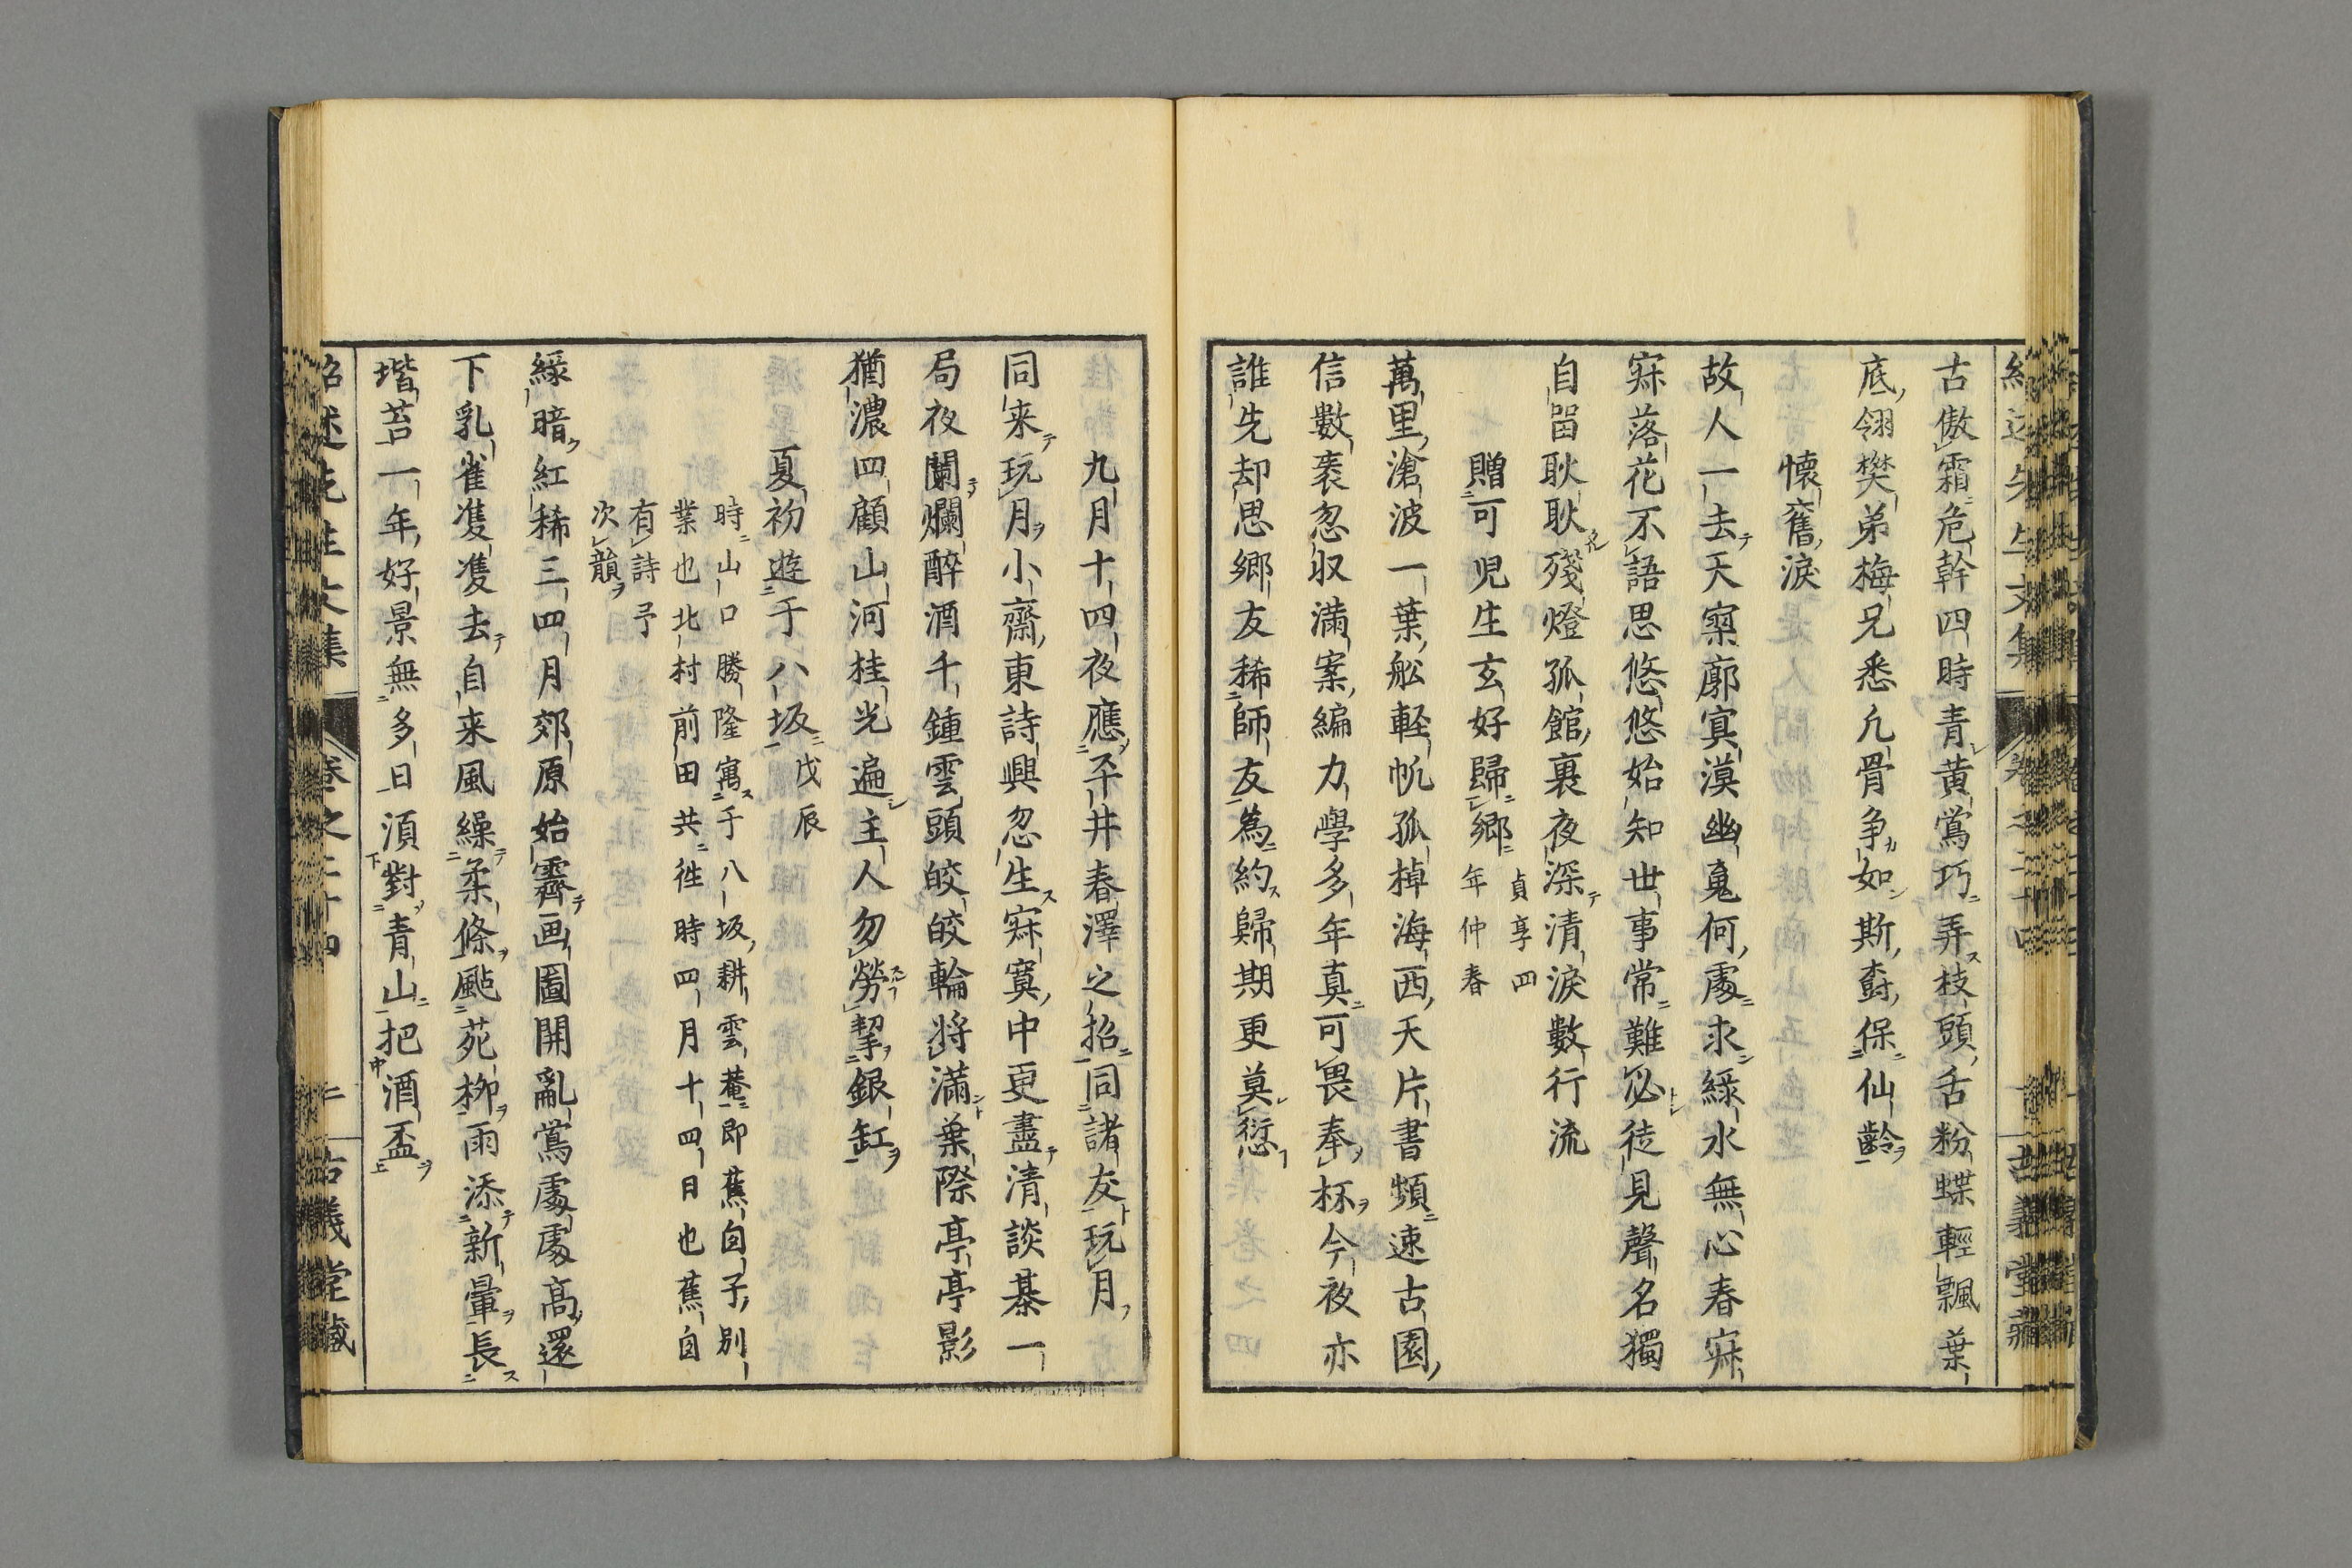 古傲霜危幹四時青黄鶯巧弄枝頭舌粉蝶輕飄葉
底翎樊弟梅兄悉凢骨争如斯斎保仙齡
懷舊淚
故人一去天寥廓寞漠幽寃何處求綠水無心春寂
寂落花不語思悠悠始知世事常難必徒見聲名獨
自畄耿耿殘燈孤館裏夜深清淚數行流
贈可児生玄好歸鄉貞享四年仲春
萬里滄波一葉舩軽帆孤棹海西天片書頻速古園
信數袠忽収滿案編力學多年真可畏奉杯今夜亦
誰先却思鄉友稀師友為約歸期更莫愆
九月十四夜應平井春澤之招同諸友玩月
同来玩月小齋東詩興忽生寂寞中更盡清談棊一
局夜闌爛醉酒千鍾雲頭皎皎輪將滿葉際亭亭影
猶濃四顧山河桂光遍主人勿勞挈銀缸
夏初遊于八坂戊辰
時山口勝隆寓于八坂耕雲菴即蕉囪子別
業也北村前田共徃時四月十四日也蕉囪
有詩予
次韻
緑暗紅稀三四月郊原始霽画圖開亂鶯處處高還
下乳雀隻隻去自来風繰柔條颭苑栁雨添新暈長
堦苔一年好景無多日湏對青山把酒盃
紹述先生文集
卷之二十四
二
古義堂藏